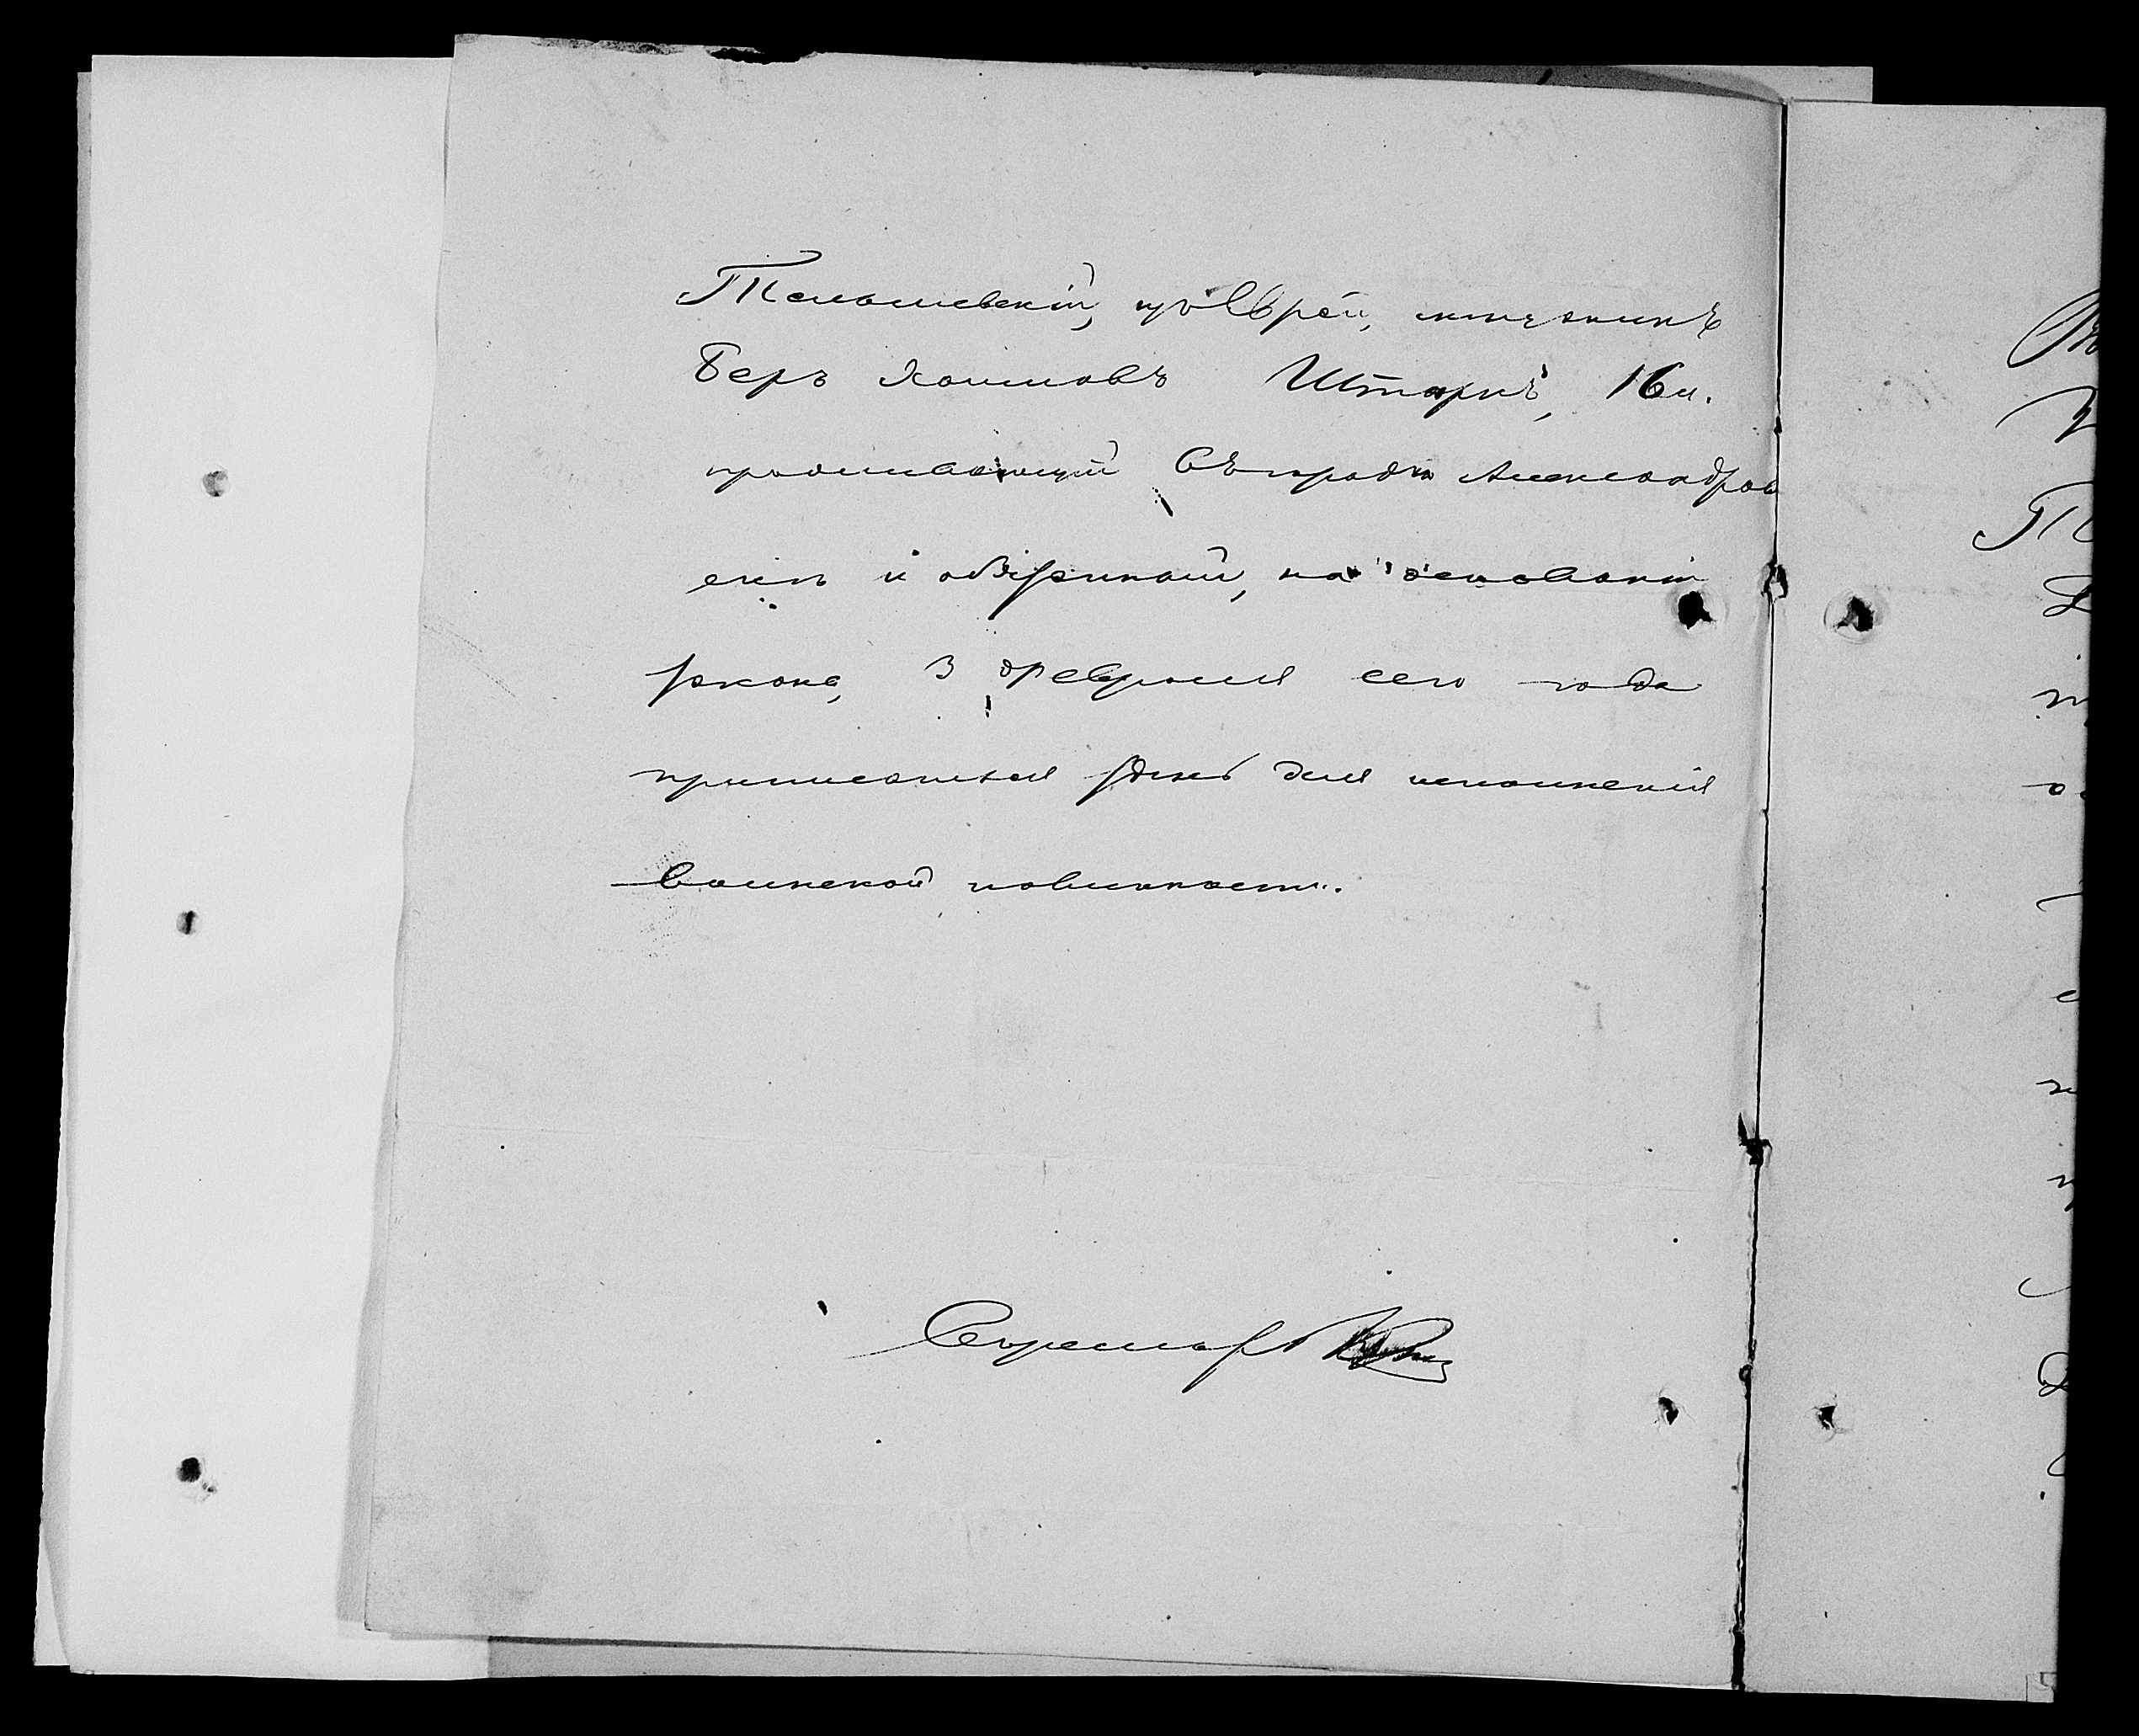 Тельшевскій, изъ Евреи, мѣщанинъ
Беръ Хаимовъ Штаркъ, 16 л.
проживающій въ городѣ Александров
скѣ и обязанный, на основаніи
закона, 3 февраля сего года
приписаться здѣсь для исполненія
воинской повинности.
Секретарь